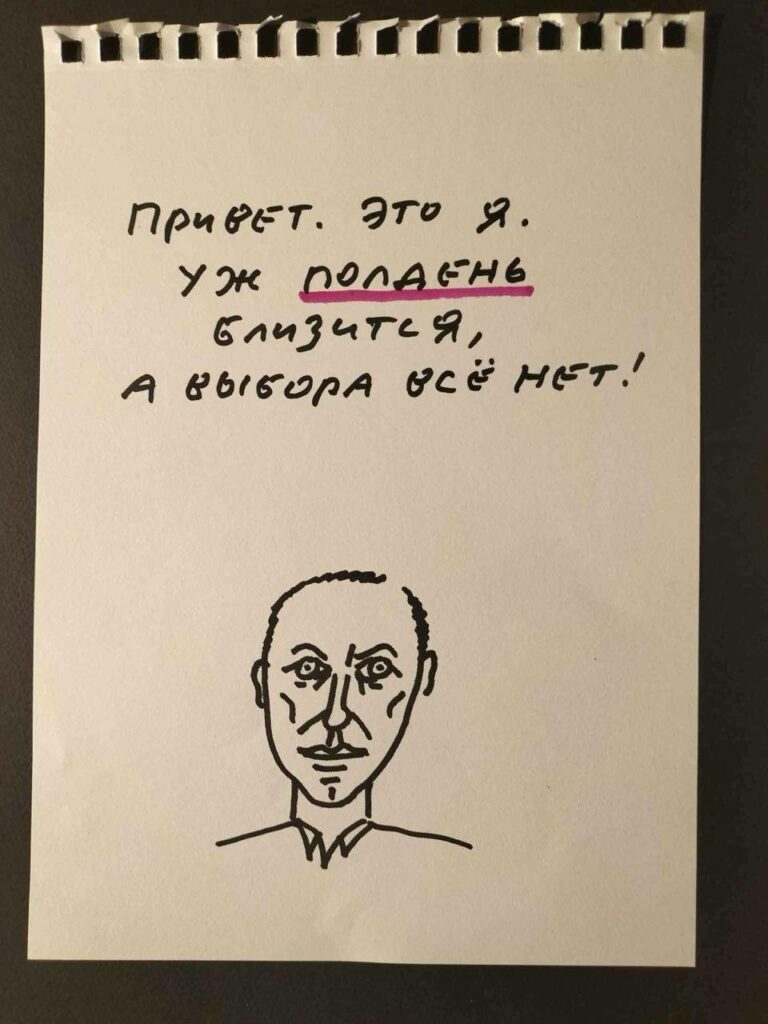 Привет. Это я.
Уж полдень
близится,
а выбора всё нет!